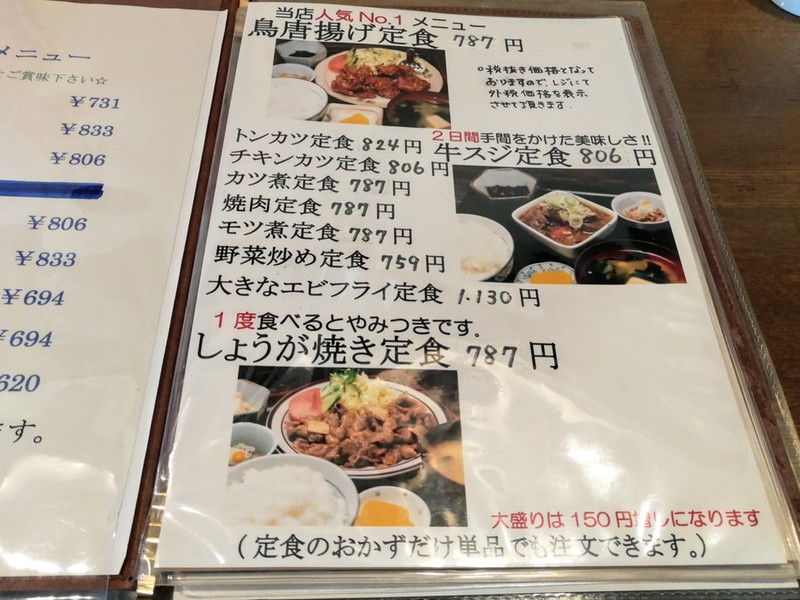 メニュー
ご賞味下さい☆
¥731
¥833
¥806
¥806
¥833
¥694
¥694
620
ます。
当店人気No.1 メニュー
鳥唐揚げ定食 787円
○税抜き価格となって
おりますので、レジにて
外税価格を表示
させて頂きます。
トンカツ定食 824円
チキンカツ定食 806円
カツ煮定食 787円
焼肉定食 787円
モツ煮定食 787円
野菜炒め定食 759円
大きなエビフライ定食 1.130円
2日間手間をかけた美味しさ!!
牛スジ定食 806円
1度食べるとやみつきです。
しょうが焼き定食 787円
大盛りは150円増しになります
(定食のおかずだけ単品でも注文できます。)